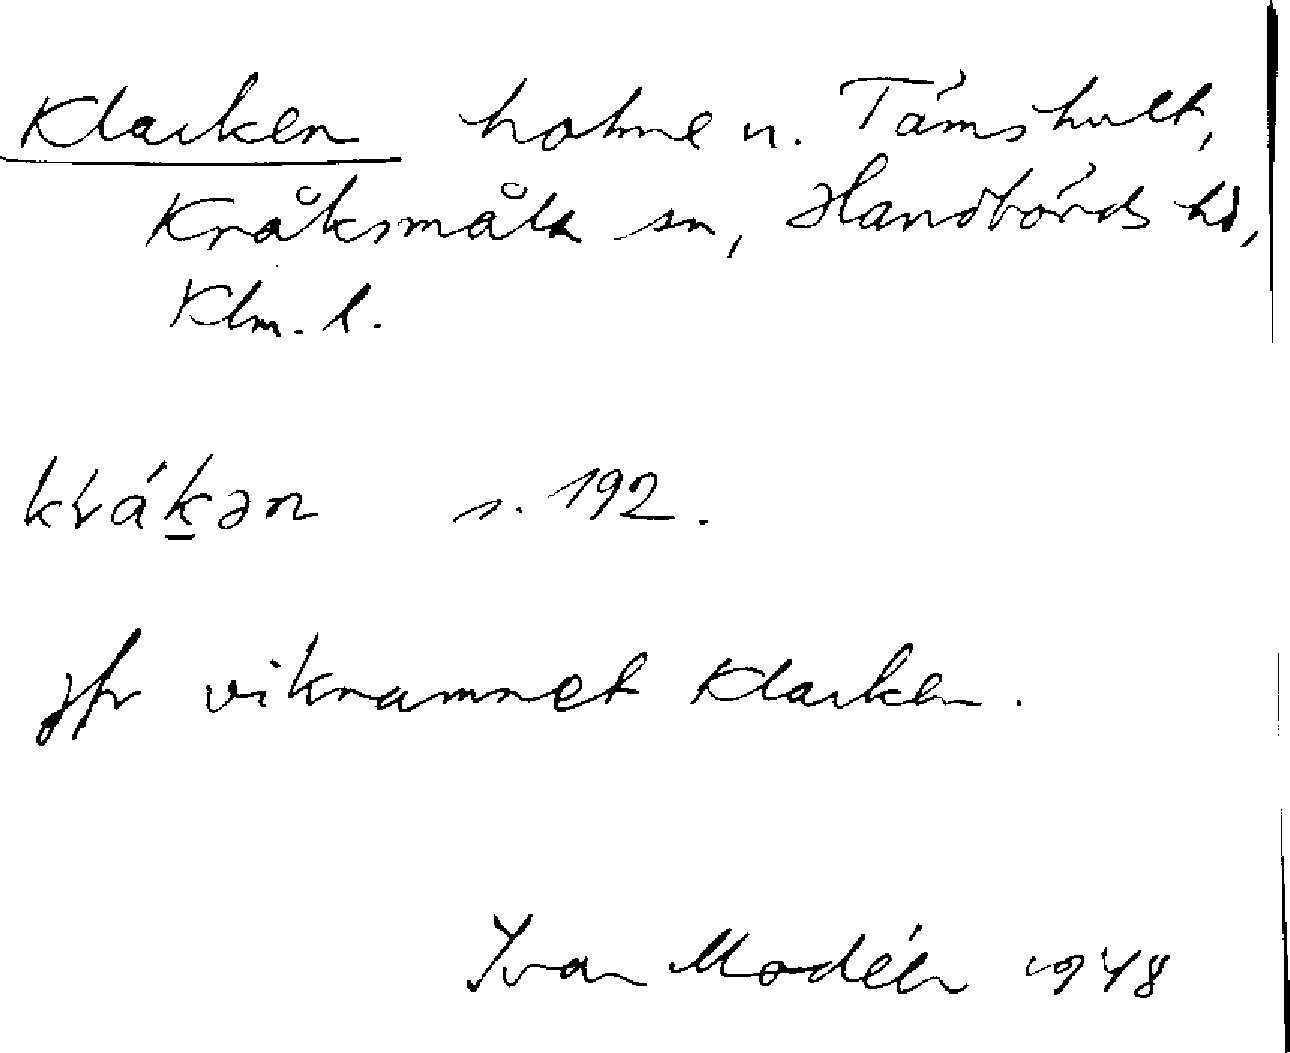 Klacken holme n. Tämshult,
Kråksmåla sn, Handbörds hd,
Klm. l.
s. 192.
jfr viknamnet Klacken.
Ivar Modéer 1948